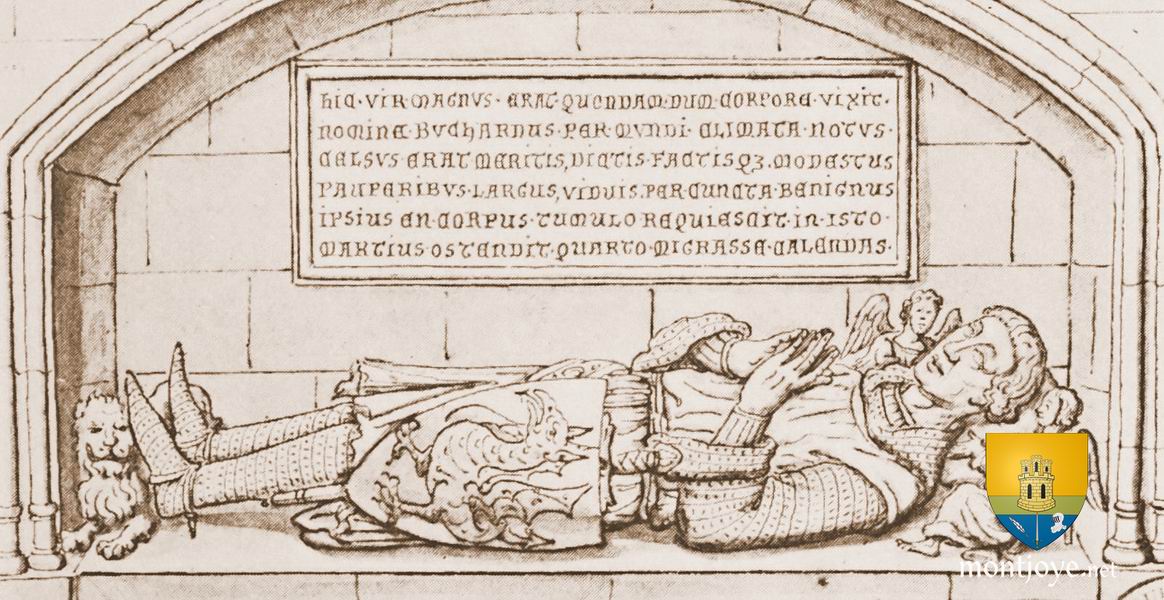 hIC·VIR·MAGNVS·ERAT·QUONDAM·DUM·CORPORE·VIXIT·
NOMINE·BVChARDUS·PER·MVNDI·CLIMATA·NOTVS·
CELSVS·ERAT·MERITIS,DICTIS·FACTISQ3·MODESTUS
PAUPERIBVS·LARGUS,VIDUIS·PER·CUNCTA·BENIGNUS
IPSIUS EN·CORPUS·TUMULO·REQUIESCIT·IN·ISTO·
MARTIUS·OSTENDIT·QUARTO·MIGRASSE·CALENDAS·
montjoye.net